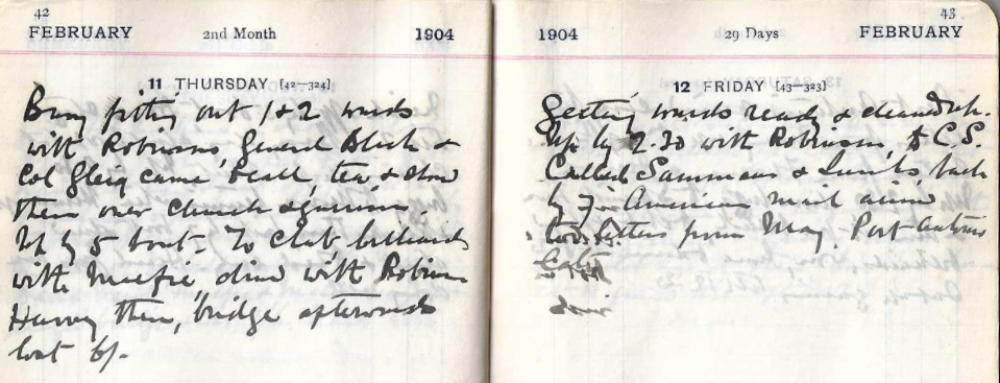 42
FEBRUARY 2nd Month 1904
11 THURSDAY [42-324]
Busy fitting out 1 & 2 wards
with Robinson, General Black &
Col Gleig came call, tea & show
them over church & garrison.
Up by 5 boat. To club billiards
with dine with Robinson
Harvey there, bridge afterwards
lost 6/-
43
1904 29 Days FEBRUARY
12 FRIDAY [43-323]
Getting wards ready & cleaned up.
Up by 2.30 with Robinson, to C.S.
Called & back
by 7 American mail
letters from May, Port Antonio